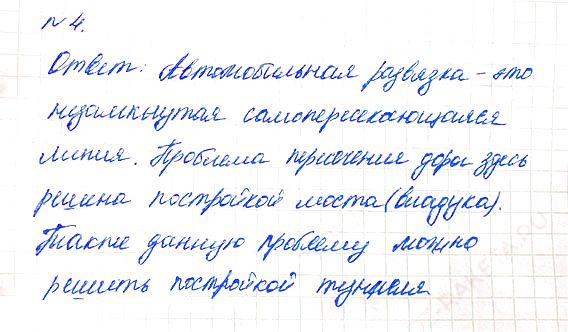 № 4.
Ответ: Автомобильная развязка - это
незамкнутая самопересекающаяся
линия. Проблема пересечения дорог здесь
решена постройкой моста (виадука).
Также данную проблему можно
решить постройкой туннеля